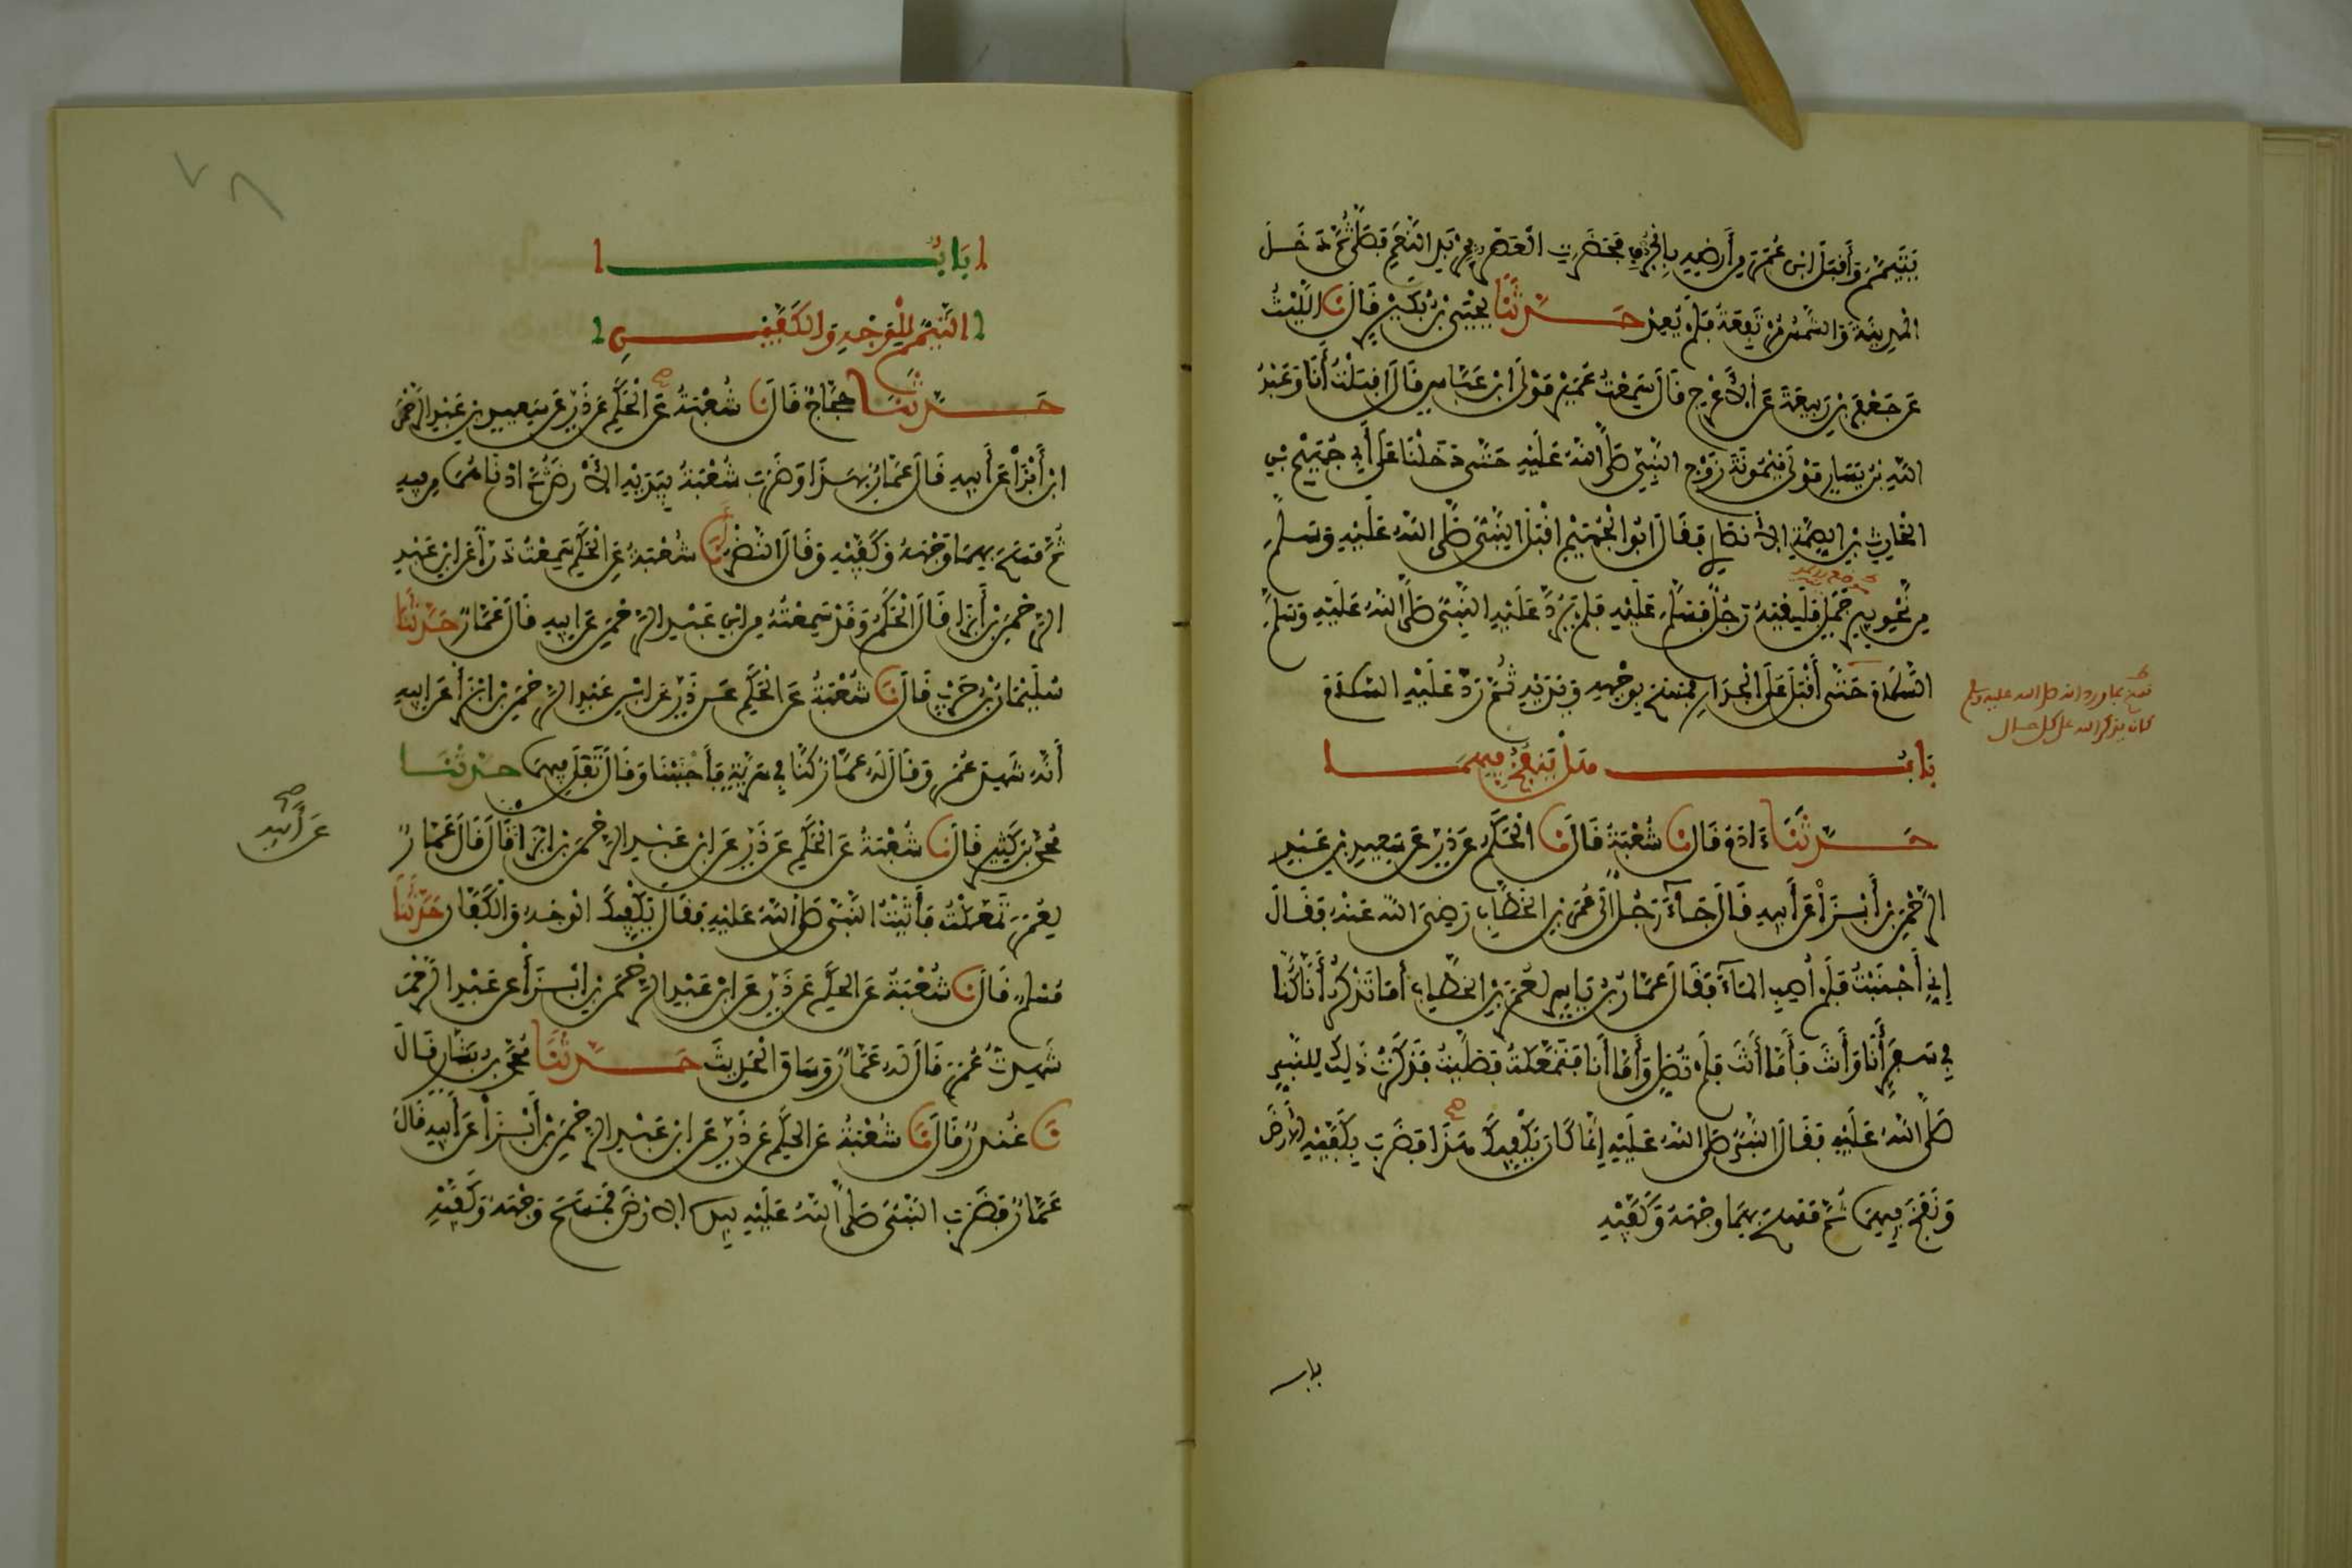 يَتَيَمَّمُ وَأَقْبَلَ ابْنُ عُمَرَ مِنْ أَرْضِهِ بِالْجُرُفِ فَحَضَرَتِ الْعَصْرُ بِمَرْبَدِ النَّعَمِ فَصَلَّى ثُمَّ دَخَلَ
الْمَدِينَةَ وَالشَّمْسُ مُرْتَفِعَةٌ فَلَمْ يُعِدْ حَدَّثَنَا يَحْيَى بْنُ بُكَيْرٍ قَالَ نَا اللَّيْثُ
عَنْ جَعْفَرِ بْنِ رَبِيعَةَ عَنِ الْأَعْرَجِ قَالَ سَمِعْتُ عُمَيْرَ مَوْلَى ابْنِ عَبَّاسٍ قَالَ أَقْبَلْتُ أَنَا وَعَبْدُ
اللَّهِ بْنُ يَسَارٍ مَوْلَى مَيْمُونَةَ زَوْجِ النَّبِيِّ صَلَّى اللَّهُ عَلَيْهِ حَتَّى دَخَلْنَا عَلَى أَبِي جُهَيْمِ بْنِ
الْحَارِثِ بْنِ الصِّمَّةِ الْأَنْصَارِيِّ فَقَالَ أَبُو الْجُهَيْمِ أَقْبَلَ النَّبِيُّ صَلَّى اللَّهُ عَلَيْهِ وَسَلَّمَ
مِنْ نَحْوِ بِيرِ جَمَلٍ فَلَقِيَهُ رَجُلٌ فَسَلَّمَ عَلَيْهِ فَلَمْ يَرُدَّ عَلَيْهِ النَّبِيُّ صَلَّى اللَّهُ عَلَيْهِ وَسَلَّمَ
السَّلَامَ حَتَّى أَقْبَلَ عَلَى الْجِدَارِ فَمَسَحَ بِوَجْهِهِ وَيَدَيْهِ ثُمَّ رَدَّ عَلَيْهِ السَّلَامَ
بَابُ هَلْ يَنْفُخُ فِيهِمَا
حَدَّثَنَا ءَادَمُ قَالَ نَا شُعْبَةُ قَالَ نَا الْحَكَمُ عَنْ ذَرٍّ عَنْ سَعِيدِ بْنِ عَبْدِ
الرَّحْمَنِ بْنِ أَبْزَى عَنْ أَبِيهِ قَالَ جَاءَ رَجُلٌ إِلَى عُمَرَ بْنِ الْخَطَّابِ رَضِيَ اللَّهُ عَنْهُ فَقَالَ
إِنِّي أَجْنَبْتُ فَلَمْ أُصِبِ الْمَاءَ فَقَالَ عَمَّارُ بْنُ يَاسِرٍ لِعُمَرَ بْنِ الْخَطَّابِ أَمَا تَذْكُرُ أَنَّا كُنَّا
فِي سَفَرٍ أَنَا وَأَنْتَ فَأَمَّا أَنْتَ فَلَمْ تُصَلِّ وَأَمَّا أَنَا فَتَمَعَّكْتُ فَصَلَّيْتُ فَذَكَرْتُ ذَلِكَ لِلنَّبِيِّ
صَلَّى اللَّهُ عَلَيْهِ فَقَالَ النَّبِيُّ صَلَّى اللَّهُ عَلَيْهِ إِنَّمَا كَانَ يَكْفِيكَ هَكَذَا فَضَرَبَ بِكَفَّيْهِ الْأَرْضَ
وَنَفَخَ فِيهِمَا ثُمَّ مَسَحَ بِهِمَا وَجْهَهُ وَكَفَّيْهِ
باب
كان يذكر الله على كل حال
بَابُ
التَّيَمُّمِ لِلْوَجْهِ وَالْكَفَّيْنِ
حَدَّثَنَا حَجَّاجٌ قَالَ نَا شُعْبَةُ عَنِ الْحَكَمِ عَنْ ذَرٍّ عَنْ سَعِيدِ بْنِ عَبْدِ الرَّحْمَنِ
ابْنِ أَبْزَى عَنْ أَبِيهِ قَالَ عَمَّارٌ بِهَذَا وَضَرَبَ شُعْبَةُ بِيَدَيْهِ الْأَرْضَ ثُمَّ أَدْنَاهُمَا مِنْ فِيهِ
ثُمَّ مَسَحَ بِهِمَا وَجْهَهُ وَكَفَّيْهِ وَقَالَ النَّضْرُ أَنَا شُعْبَةُ عَنِ الْحَكَمِ سَمِعْتُ ذَرًّا عَنِ ابْنِ عَبْدِ
الرَّحْمَنِ بْنِ أَبْزَى قَالَ الْحَكَمُ وَقَدْ سَمِعْتُهُ مِنِ ابْنِ عَبْدِ الرَّحْمَنِ عَنْ أَبِيهِ قَالَ عَمَّارٌ حَدَّثَنَا
سُلَيْمَانُ بْنُ حَرْبٍ قَالَ نَا شُعْبَةُ عَنِ الْحَكَمِ عَنْ ذَرٍّ عَنِ ابْنِ عَبْدِ الرَّحْمَنِ بْنِ أَبْزَى عَنْ أَبِيهِ
أَنَّهُ شَهِدَ عُمَرَ وَقَالَ لَهُ عَمَّارٌ كُنَّا فِي سَرِيَّةٍ فَأَجْنَبْنَا وَقَالَ تَفَلَ فِيهِمَا حَدَّثَنَا
مُحَمَّدُ بْنُ كَثِيرٍ قَالَ نَا شُعْبَةُ عَنِ الْحَكَمِ عَنْ ذَرٍّ عَنِ ابْنِ عَبْدِ الرَّحْمَنِ بْنِ أَبْزَى قَالَ قَالَ عَمَّارٌ
عَنْ أَبِيهِ
لِعُمَرَ تَمَعَّكْتُ فَأَتَيْتُ النَّبِيَّ صَلَّى اللَّهُ عَلَيْهِ فَقَالَ يَكْفِيكَ الْوَجْهُ وَالْكَفَّانِ حَدَّثَنَا
مُسْلِمٌ قَالَ نَا شُعْبَةُ عَنِ الْحَكَمِ عَنْ ذَرٍّ عَنِ ابْنِ عَبْدِ الرَّحْمَنِ بْنِ أَبْزَى عَنْ عَبْدِ الرَّحْمَنِ
شَهِدْتُ عُمَرَ قَالَ لَهُ عَمَّارٌ وَسَاقَ الْحَدِيثَ حَدَّثَنَا مُحَمَّدُ بْنُ بَشَّارٍ قَالَ
نَا غُنْدَرٌ قَالَ نَا شُعْبَةُ عَنِ الْحَكَمِ عَنْ ذَرٍّ عَنِ ابْنِ عَبْدِ الرَّحْمَنِ بْنِ أَبْزَى عَنْ أَبِيهِ قَالَ
عَمَّارٌ فَضَرَبَ النَّبِيُّ صَلَّى اللَّهُ عَلَيْهِ بِيَدِهِ الْأَرْضَ فَمَسَحَ وَجْهَهُ وَكَفَّيْهِ